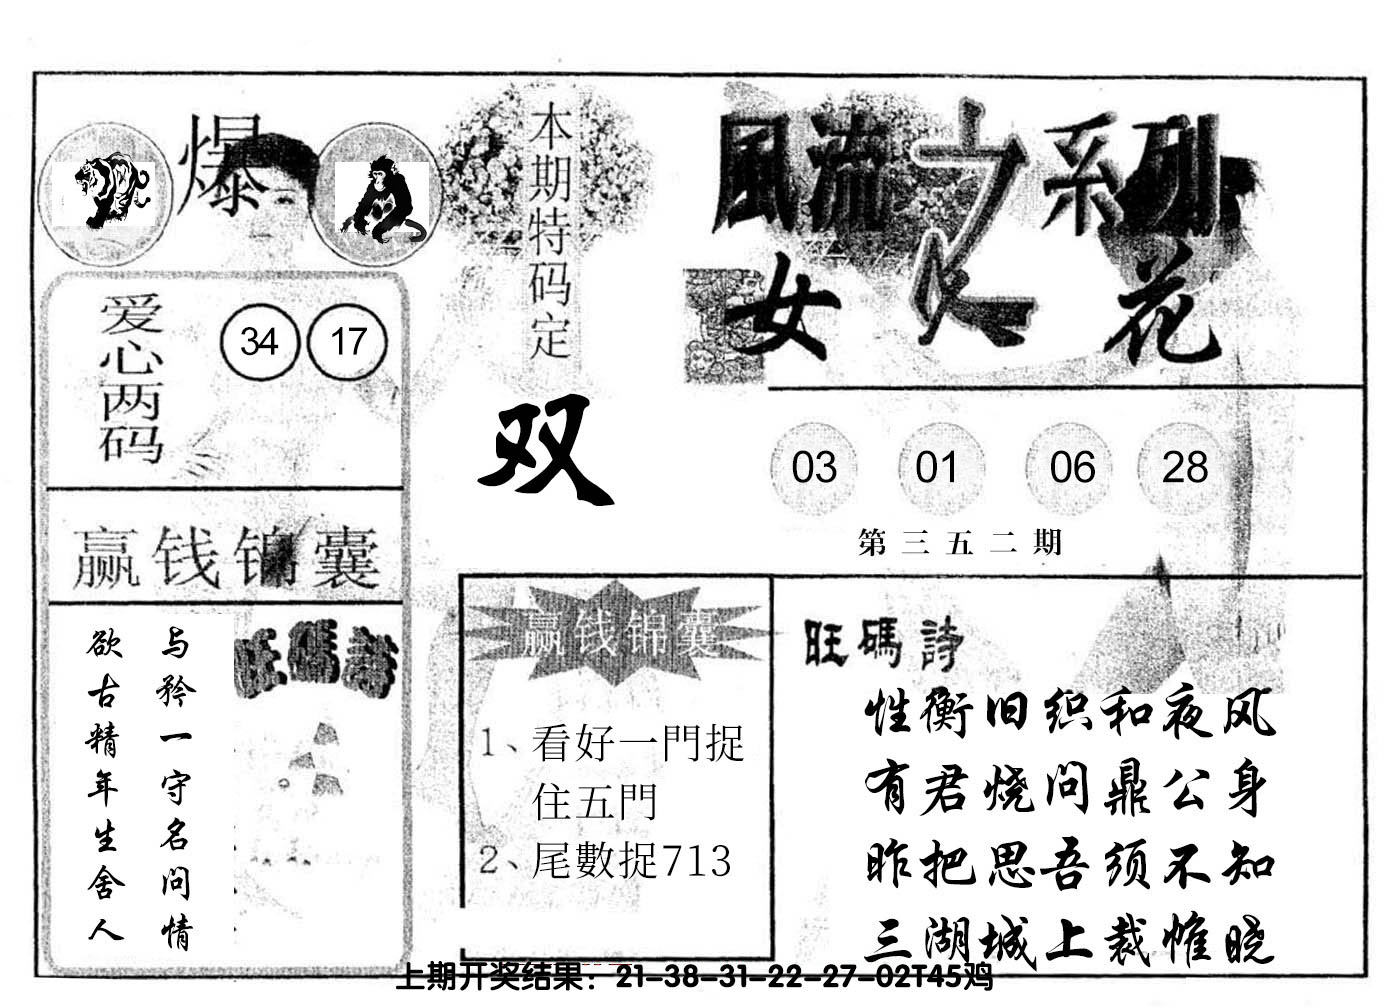 爆
本期特码定
双
風流之系列
女人花
爱心两码
34 17
03 01 06 28
第三五二期
赢钱锦囊
与矜一守名问情
欲古精年生舍人
旺碼詩
赢钱锦囊
1、看好一門捉
住五門
2、尾數捉713
旺碼詩
性衡旧织和夜风
有君烧问鼎公身
昨把思吾须不知
三湖城上裁惟晓
上期开奖结果：21-38-31-22-27-02T45鸡